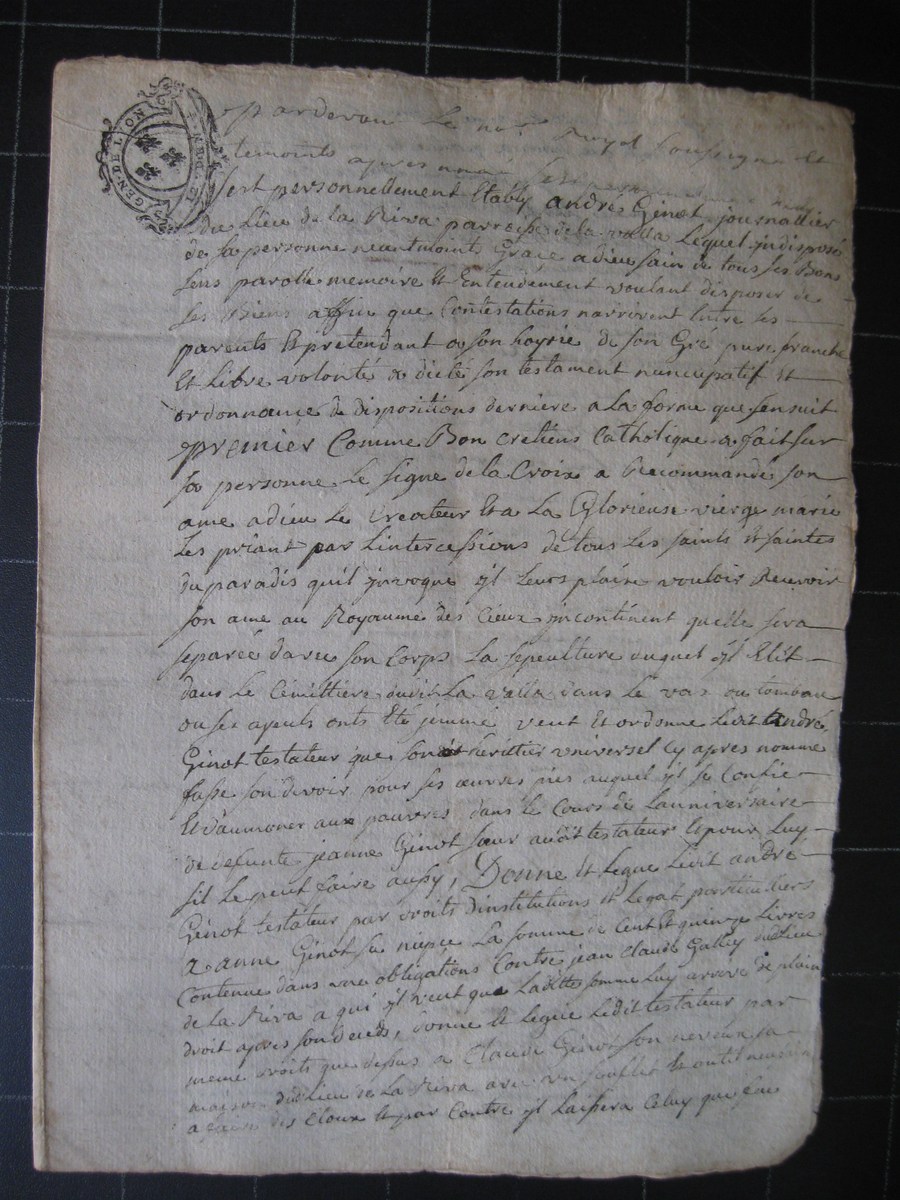 GEN. DE LION
pardevant le no.re Royal soussigné et
temoints apres només
s'est personnellement Etably andré Ginot journallier
du Lieu de la Riva parroisse de la valla Lequel jndisposé
de sa personne neantmoints Grace adieu sain de tous ses Bons
sens parolle memoire Et Entendement voulant disposer de
ses Biens affin que Contestations narrivent Entre ses
parents Et pretendant a son hoyrie de son Gré pure franche
Et Libre volonté a dicté son testament nuncupatif Et
ordonnance de dispositions derniere a la forme que sensuit
premier Comme Bon Cretiens Catholique a fait sur
sa personne Le signe de la Croix a Recommandé son
ame adieu Le Createur Et a La Glorieuse vierge marie
Les priant par Lintercessions de tous Les saints Et saintes
du paradis qu'il jnvoque jl Leurs plaise vouloir Recevoir
son ame au Royaume des Cieux jncontinent quelle sera
separée davec son Corps La sepculture auquel jl Elit
dans le Cémittière dudit La valla dans le vas ou tombau
ou ses ayeuls onts Eté jnumé veut Et ordonne Ledit André
Ginot testateur que son herittier universel Cy apres nommé
fasse son devoir pour ses œuvres pies auquel jl se Confie
Et d'aumoner aux pauvres dans le Cours de Lanniversaire
de defunte jeanne Ginot sœur audit testateur Et pour Luy
sil Le peut faire aussy, Donne Et Legue Ledit andré
Ginot testateur par droits d'institutions Et Legat particuliers
a anne Ginot sa niepce La somme de Cent Et quinze Livres
Contenue dans une obligations Contre jean Claude Galley dudit Lieu
de la Riva a qui jl veut que Laditte somme Luy arrive de plain
droit apres son deceds, donne Et Legue Ledit testateur par
meme droits que dessus a Claude Ginot son neveux sa
maison dudit Lieu de La Riva avec un soufflet Et
a faire des Cloux Et par Contre jl Laissera Celuy que